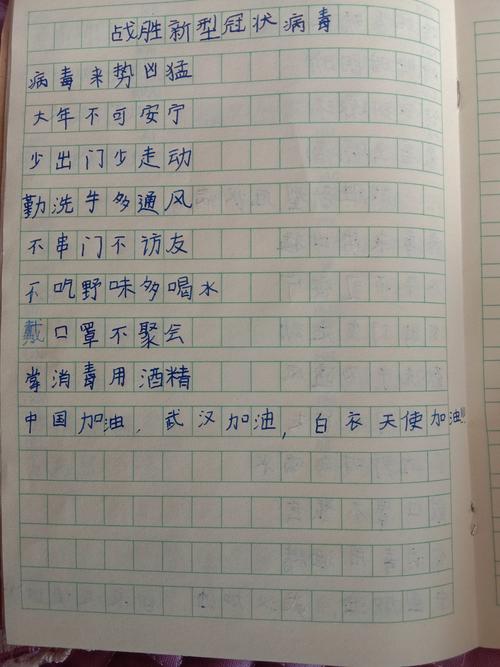 战胜新型冠状病毒
病毒来势凶猛
大年不可安宁
少出门少走动
勤洗手多通风
不串门不访友
不吃野味多喝水
戴口罩不聚会
常消毒用酒精
中国加油，武汉加油，白衣天使加油!!!